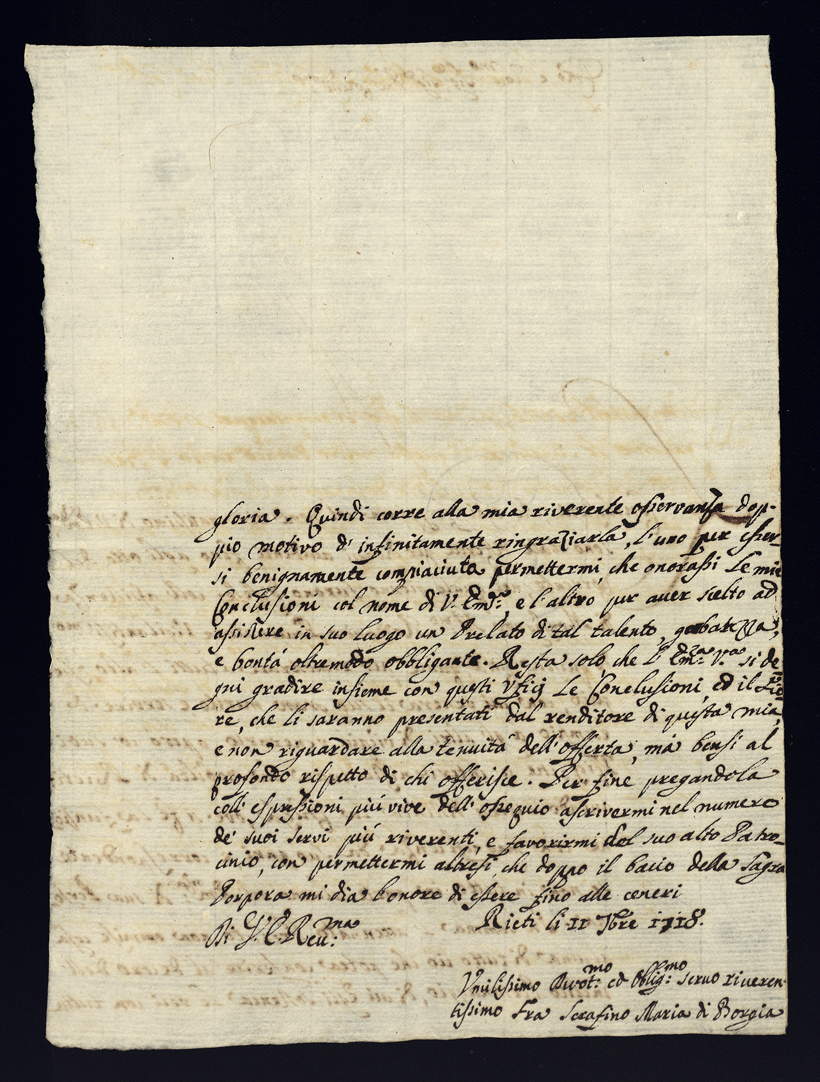 gloria. Quindi corre alla mia riverente osservanza dop-
pio motivo d' infinitamente ringraziarla, l'uno per esser-
si benignamente compiaciuta permettermi, che onorassi Le mie
Conclusioni col nome di V. Em.ª, e l'altro per aver scelto ad
assistere in suo luogo un Prelato di tal talento, garbatezza,
e bontá oltremodo obbligante. Resta solo che l' Em.za V.ra si de
gni gradire insieme con questi Vficij Le Conclusioni, ed il
re, che li saranno presentati dal renditore di questa mia,
e non riguardare alla tenuitá dell' offerta, má bensi al
profondo rispetto di chi offerisce. Per fine pregandola
coll' espressioni piú vive dell' ossequio ascrivermi nel numero
de' suoi servi piú riverenti, e favorirmi del suo alto Patro-
cinio, con permettermi altresi, che doppo il bacio della Sagra
Porpora mi dia l'onore di essere fino alle ceneri
Di V. E. Reu.ma Rieti li 11 7bre 1718.
Vmilissimo Divot.mo ed Obblig.mo servo riveren
tissimo Fra Serafino Maria di Borgia